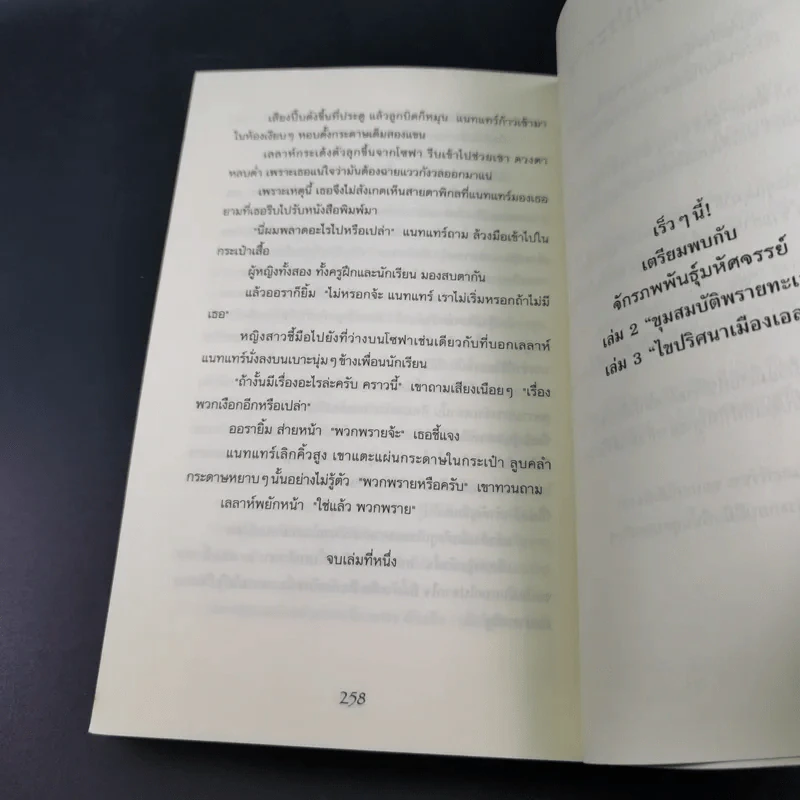 เสียงปั๊บดังขึ้นที่ประตู แล้วลูกบิดก็หมุน แนทแทร์ก้าวเข้ามา
ในห้องเงียบๆ หอบตั้งกระดาษเต็มสองแขน
เลลาห์กระเด้งตัวลุกขึ้นจากโซฟา รีบเข้าไปช่วยเขา ดวงตา
หลบต่ำ เพราะเธอแน่ใจว่ามันต้องฉายแววกังวลออกมาแน่
เพราะเหตุนี้ เธอจึงไม่สังเกตเห็นสายตาพิกลที่แนทแทร์มองเธอ
ยามที่เธอรีบไปรับหนังสือพิมพ์มา
"นี่ผมพลาดอะไรไปหรือเปล่า" แนทแทร์ถาม ล้วงมือเข้าไปใน
กระเป๋าเสื้อ
ผู้หญิงทั้งสอง ทั้งครูฝึกและนักเรียน มองสบตากัน
แล้วออราก็ยิ้ม "ไม่หรอกจ้ะ แนทแทร์ เราไม่เริ่มหรอกถ้าไม่มี
เธอ"
หญิงสาวชี้มือไปยังที่ว่างบนโซฟาเช่นเดียวกับที่บอกเลลาห์
แนทแทร์นั่งลงบนเบาะนุ่มๆ ข้างเพื่อนนักเรียน
"ถ้างั้นมีเรื่องอะไรล่ะครับ คราวนี้" เขาถามเสียงเนือยๆ "เรื่อง
พวกเงือกอีกหรือเปล่า"
ออรายิ้ม ส่ายหน้า "พวกพรายจ้ะ" เธอชี้แจง
แนทแทร์เลิกคิ้วสูง เขาแตะแผ่นกระดาษในกระเป๋า ลูบคลำ
กระดาษหยาบๆ นั้นอย่างไม่รู้ตัว "พวกพรายหรือครับ" เขาทวนถาม
เลลาห์พยักหน้า "ใช่แล้ว พวกพราย"
จบเล่มที่หนึ่ง
258
เร็วๆ นี้!
เตรียมพบกับ
จักรภพพันธุ์มหัศจรรย์
เล่ม 2 "ขุมสมบัติพรายทะเ
เล่ม 3 "ไขปริศนาเมืองเอล